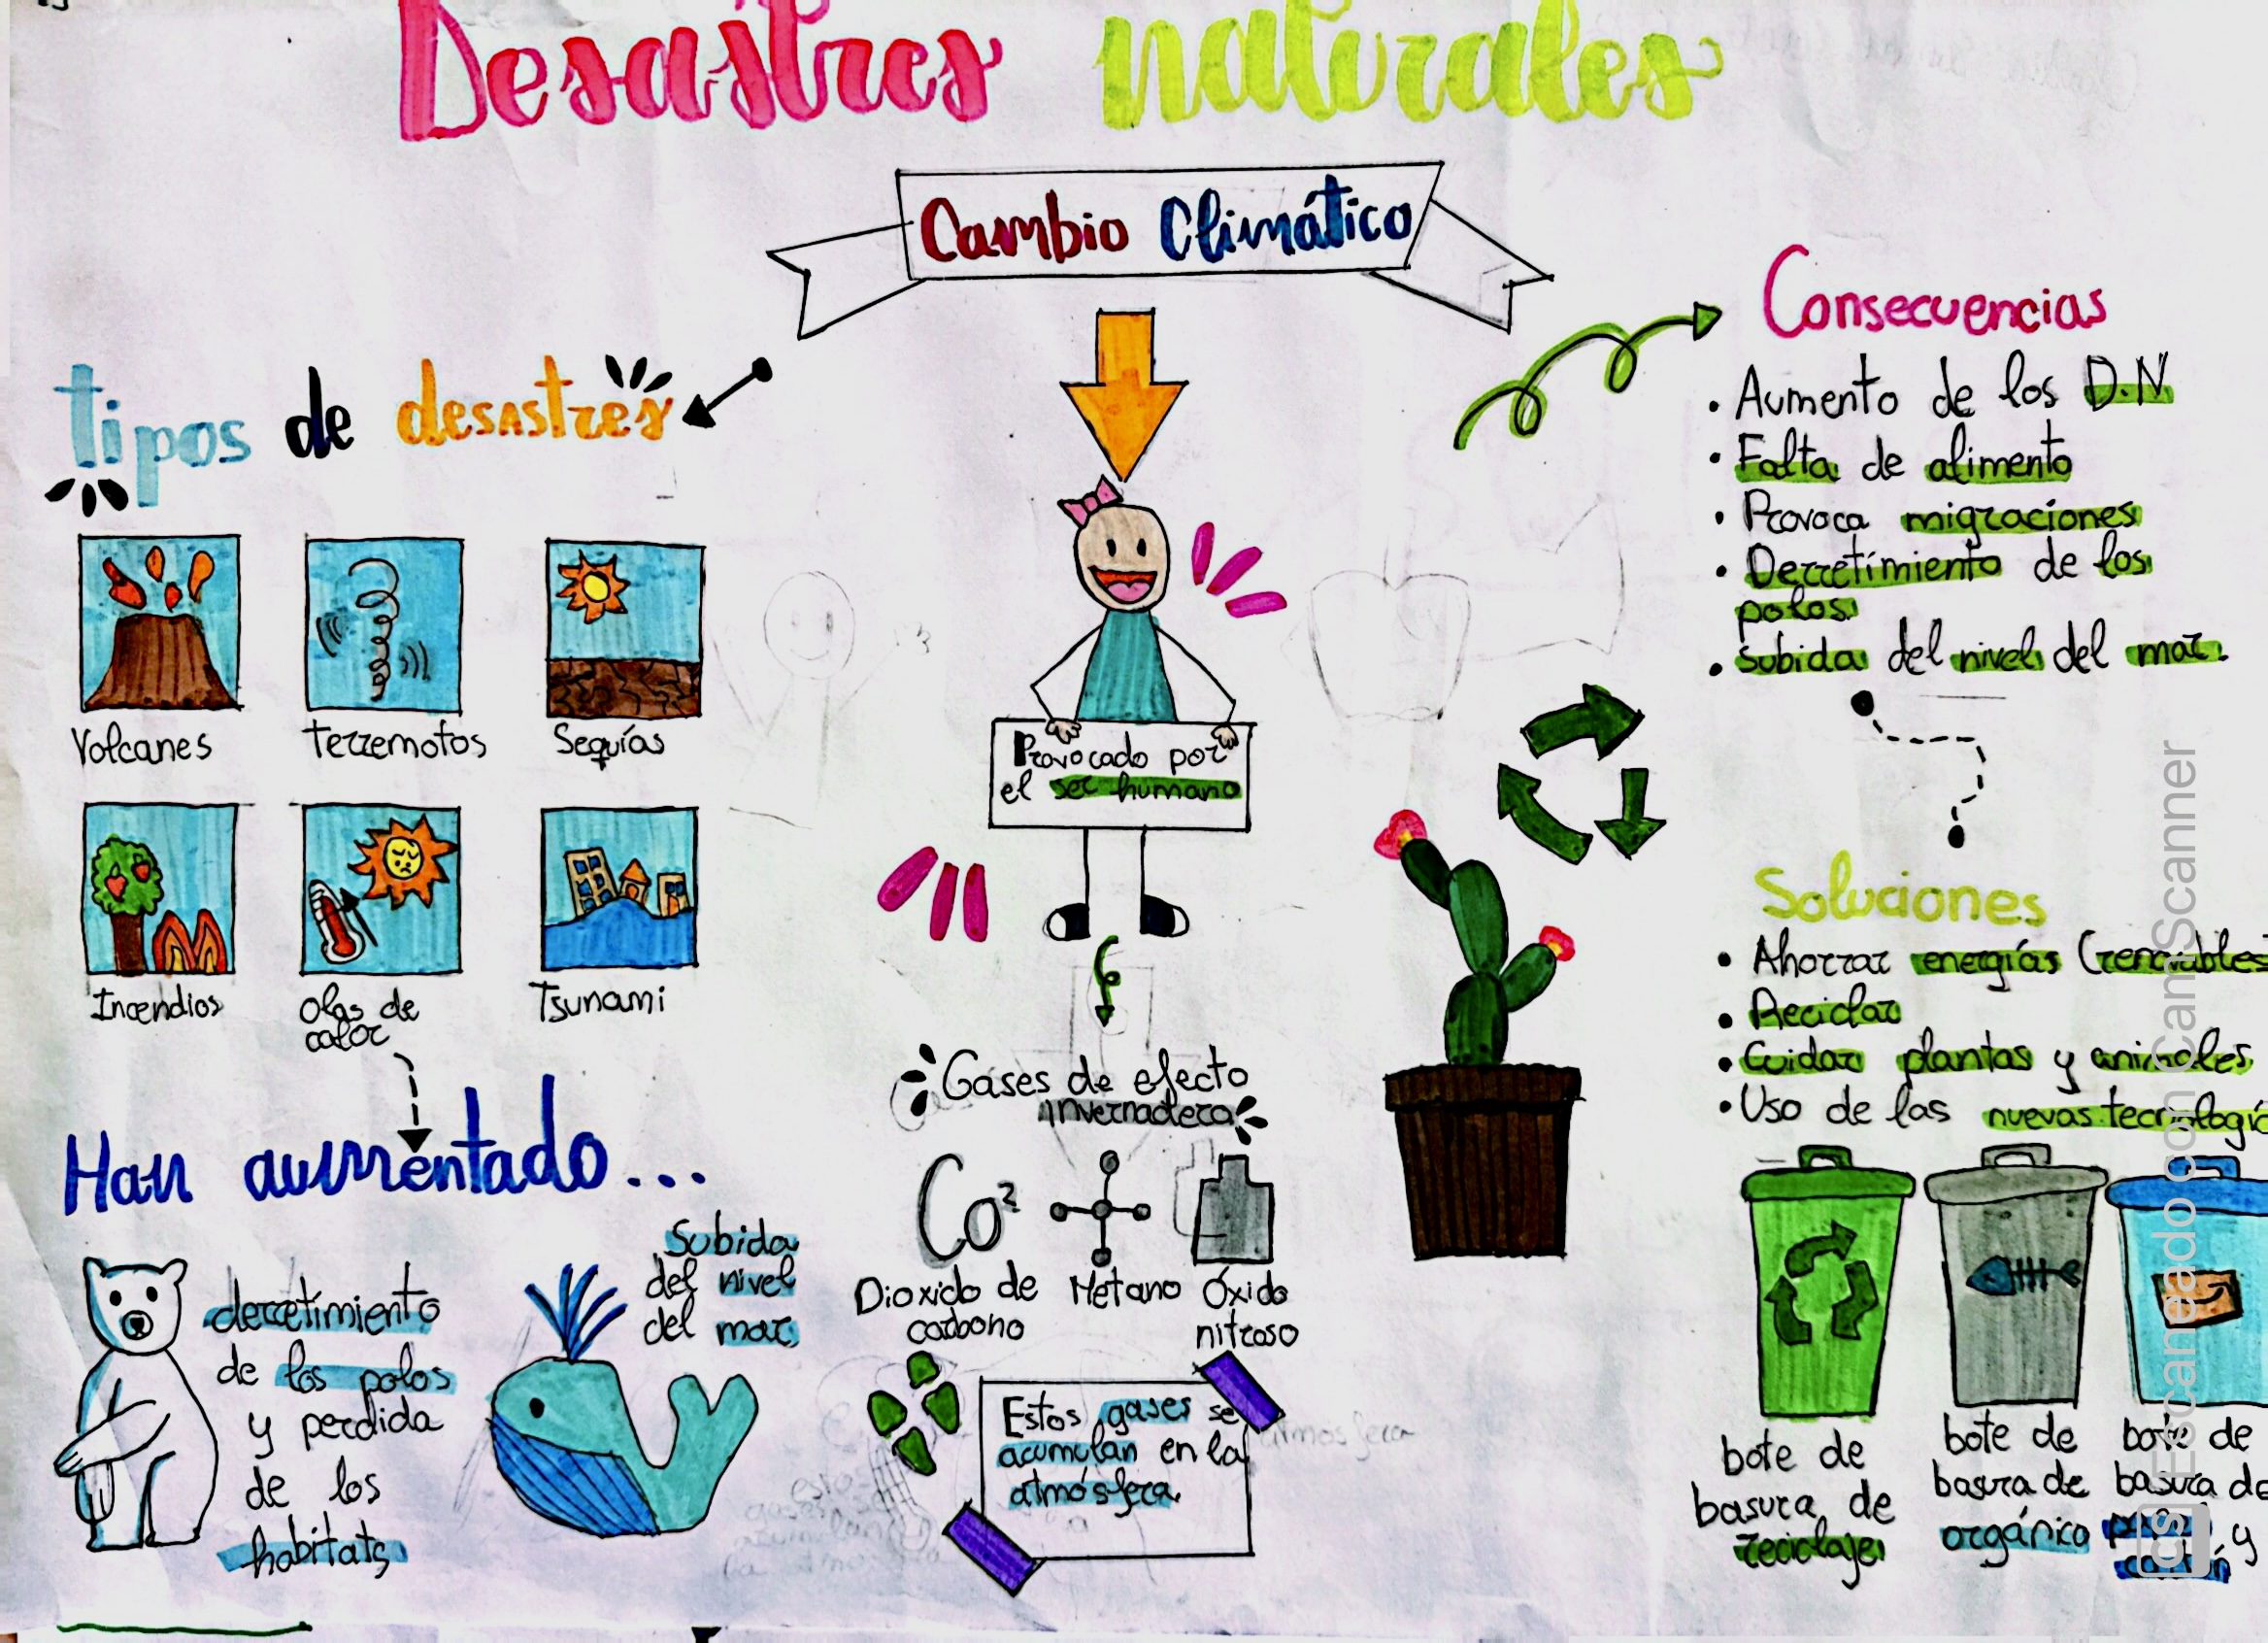 Desastres naturales
Cambio Climático
tipos de desastres
Volcanes
terremotos
Sequías
Incendios
Olas de
calor
Tsunami
Han aumentado...
derretimiento
de los polos
y perdida
de los
habitats
Subida
del nivel
del mar
Provocado por
el ser humano
Gases de efecto
invernadero
Co²
Dioxido de
carbono
Metano
Óxido
nitroso
Estos gases se
acumulan en la
atmósfera
atmosfera
Consecuencias
• Aumento de los D.N
• Falta de alimento
• Provoca migraciones
• Derretimiento de los
polos.
• Subida del nivel del mar.
Soluciones
• Ahorrar energías (renovables
• Reciclar
• Cuidar plantas y animales
• Uso de las nuevas tecnologí
bote de
basura de
reciclaje
bote de
basura de
orgánico
bote de
basura de
y
Escaneado con CamScanner
CS